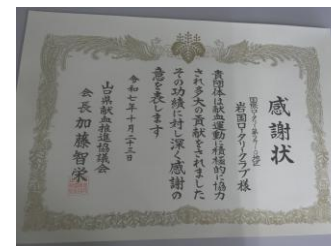 感謝状
岩国ロータリークラブ様
貴団体は献血運動に積極的に協力
され多大の貢献をされました
その功績に対し深く感謝の
意を表します
令和七年十月二十三日
山口県献血推進協議会
会長 加藤智栄